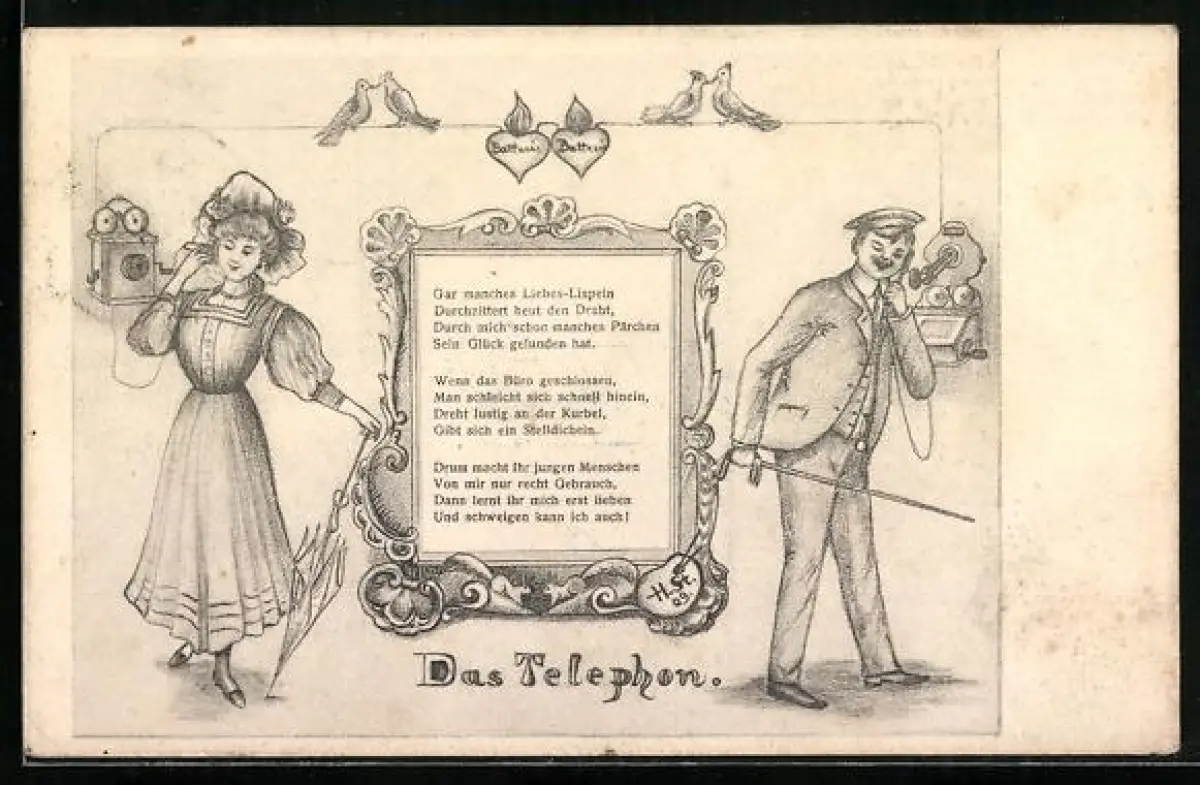 Batterie Batterie
Gar manches Liebes-Lispeln
Durchzittert heut den Draht,
Durch mich schon manches Pärchen
Sein Glück gefunden hat.
Wenn das Büro geschlossen,
Man schleicht sich schnell hinein,
Dreht lustig an der Kurbel,
Gibt sich ein Stelldichein.
Drum macht Ihr jungen Menschen
Von mir nur recht Gebrauch,
Dann lernt ihr mich erst lieben
Und schweigen kann ich auch!
H. St.
09.
Das Telephon.